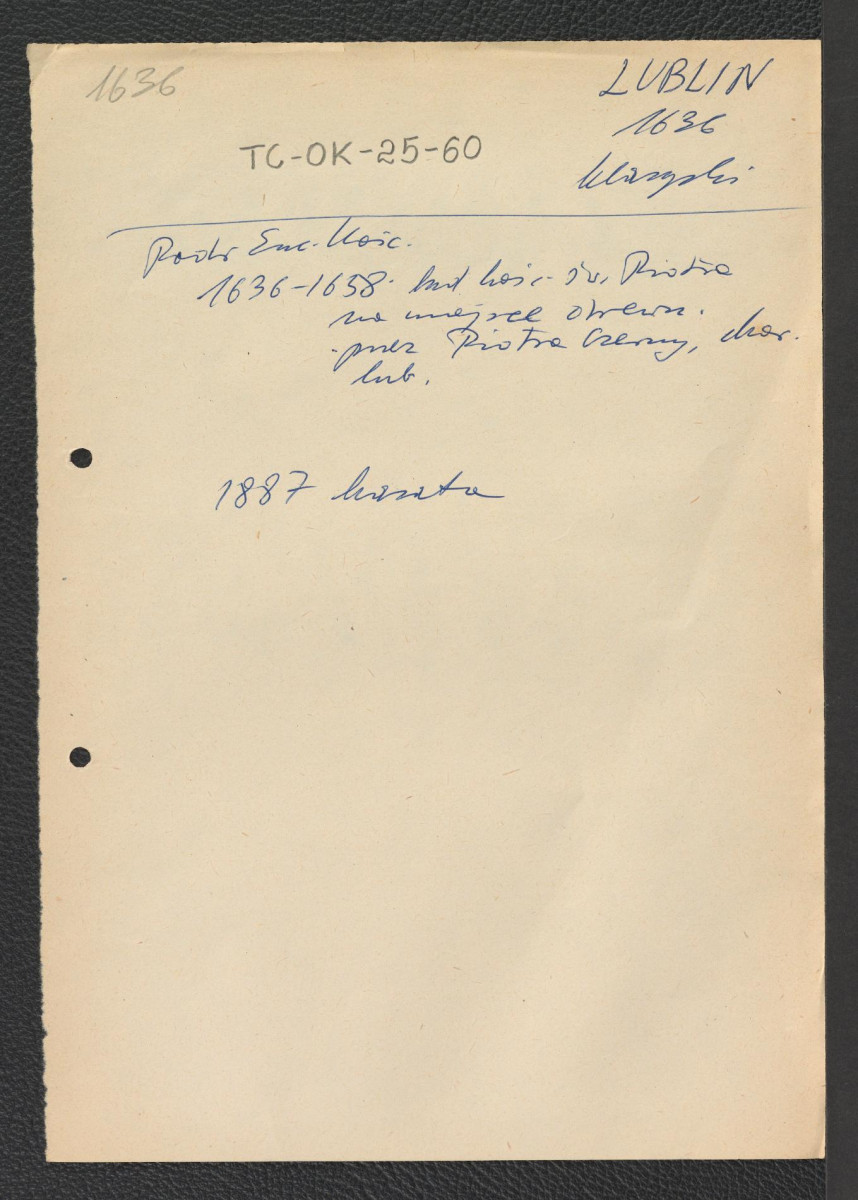 1636
LUBLIN
1636
TC-OK-25-60
klasztory
Podr Enc. Kośc.
1636-1658. bud kośc. św. Piotra
na miejsce drewn.
przez Piotra Czerny, chor.
lub.
1887 kasata